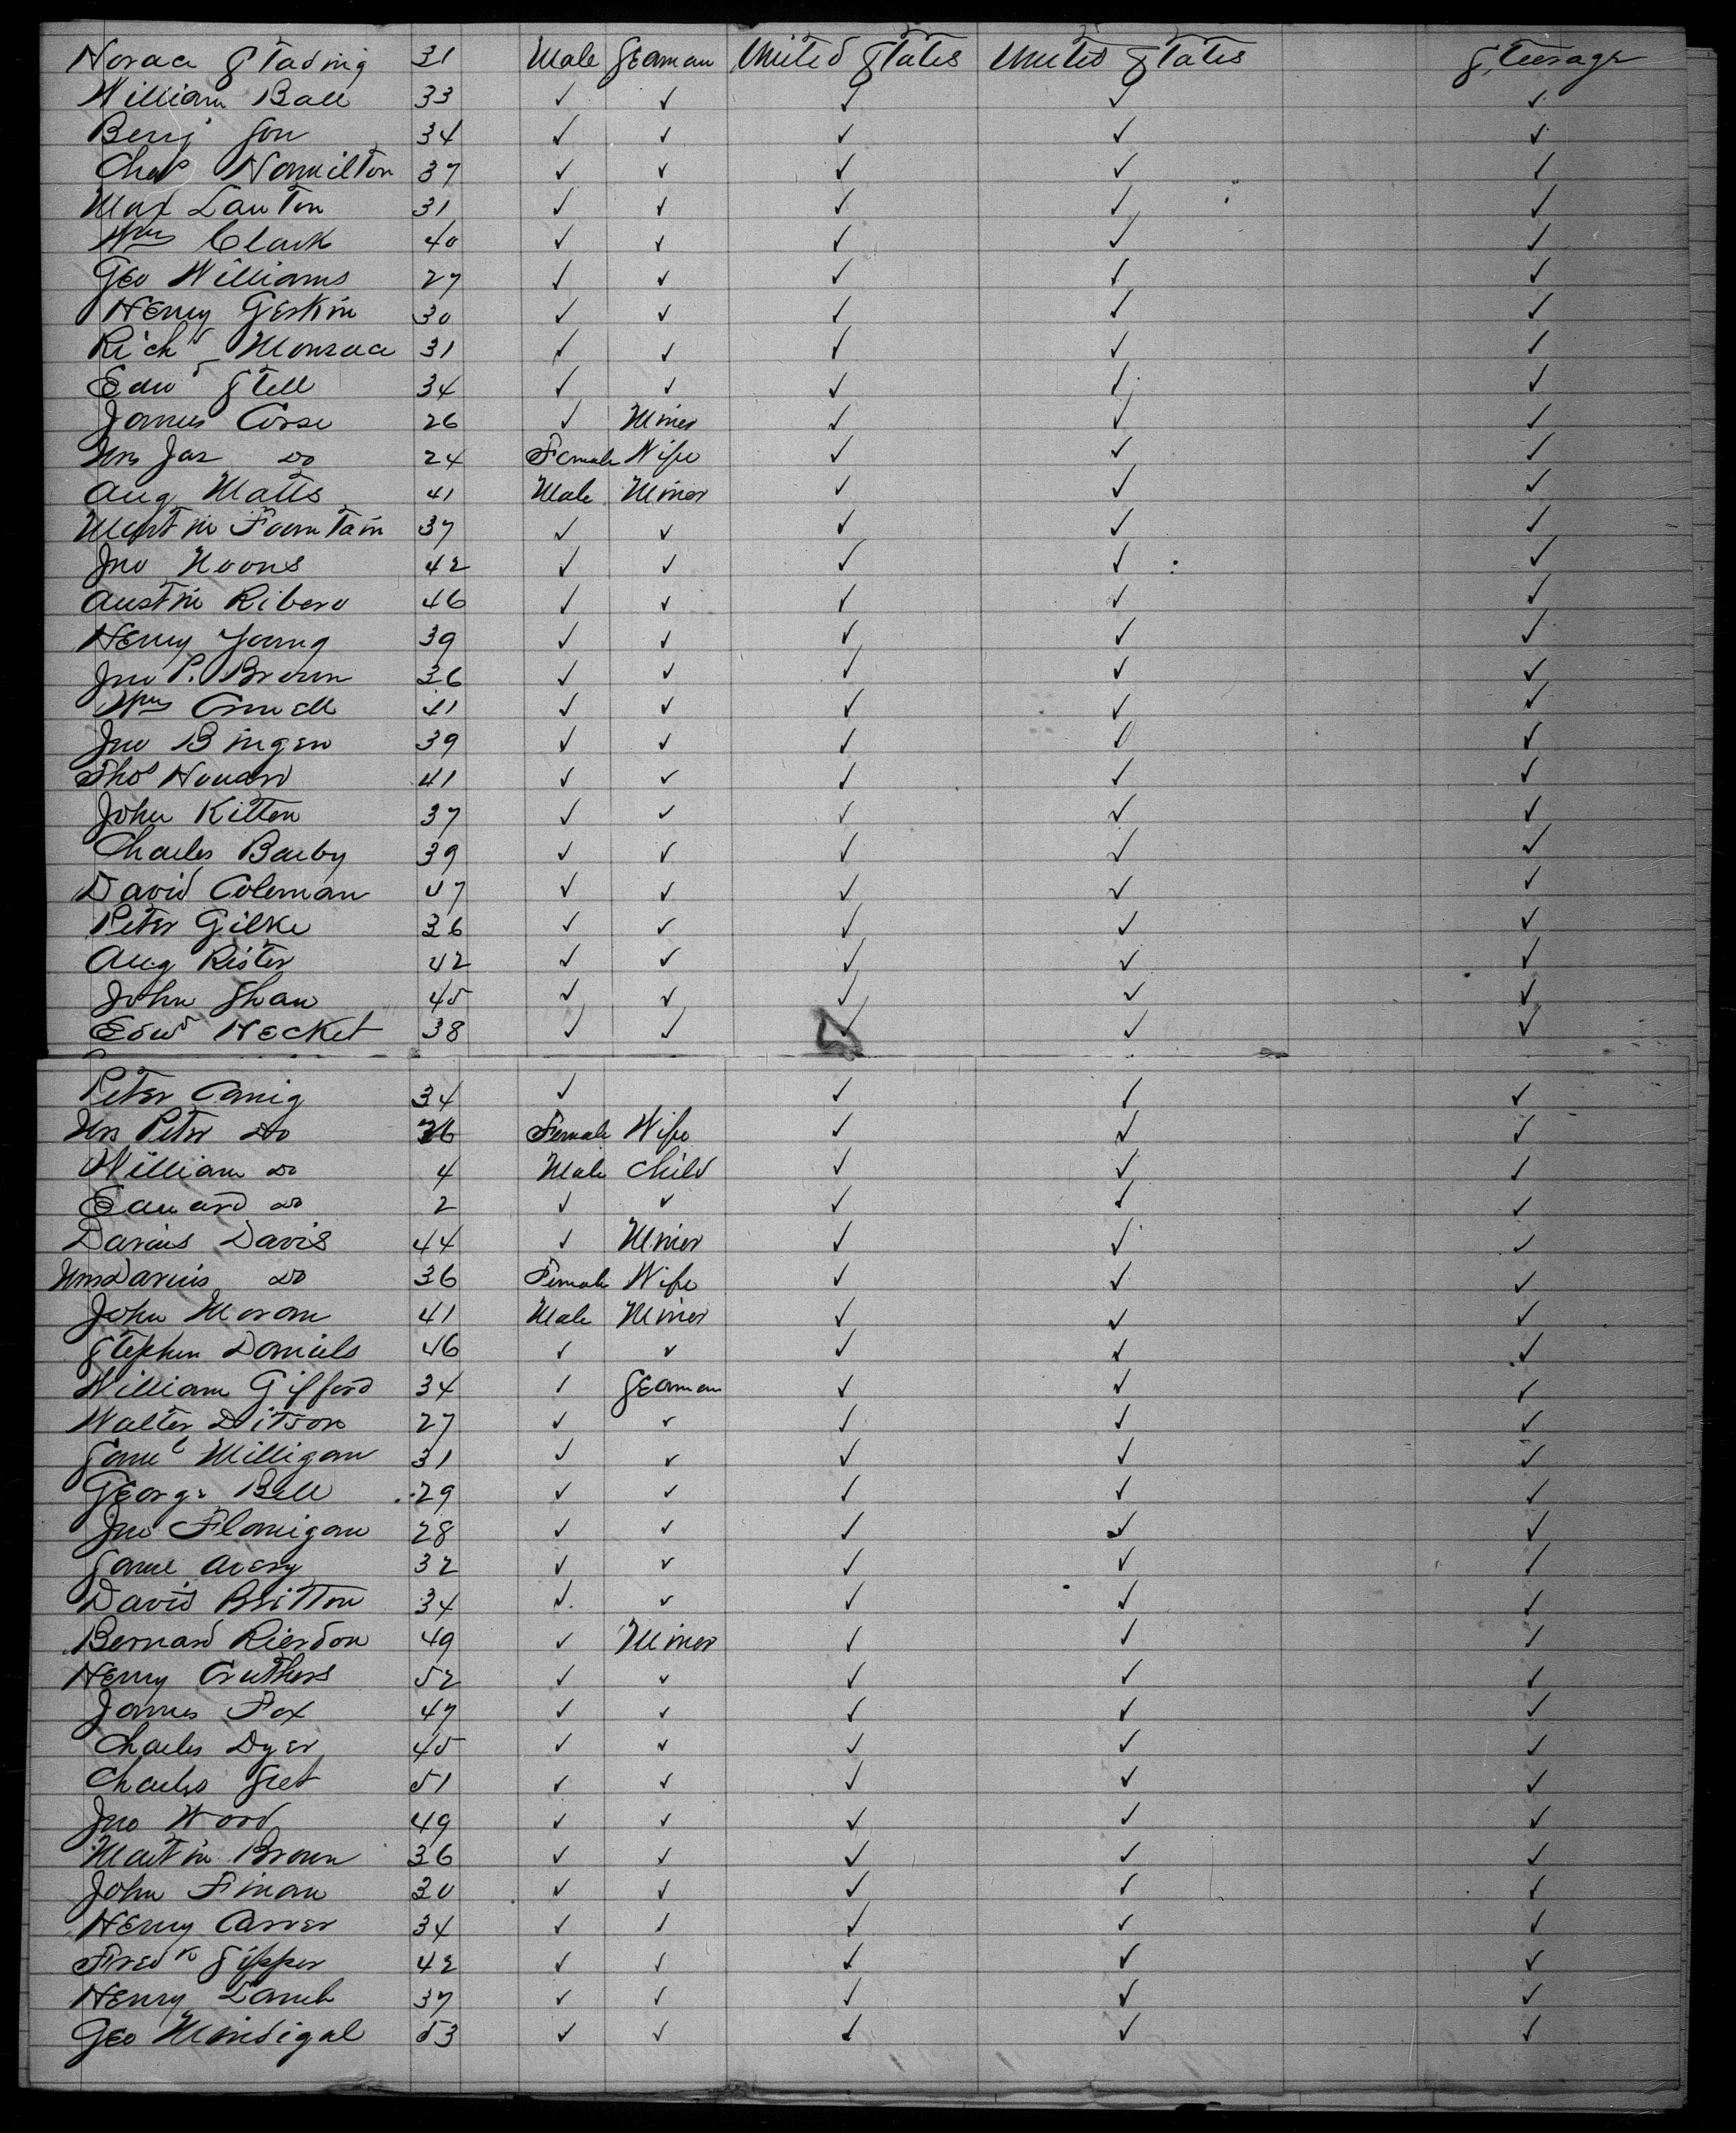 Horace Stading 31 Male Seaman United States United States Steerage
William Ball 33 ✓ ✓ ✓ ✓ ✓
Benj Son 34 ✓ ✓ ✓ ✓ ✓
Chas Hamilton 37 ✓ ✓ ✓ ✓ ✓
Max Lauton 31 ✓ ✓ ✓ ✓ ✓
Wm Clark 40 ✓ ✓ ✓ ✓ ✓
Geo Williams 27 ✓ ✓ ✓ ✓ ✓
Henry Gerkin 30 ✓ ✓ ✓ ✓ ✓
Richd Monroe 31 ✓ ✓ ✓ ✓ ✓
Edwd Stell 34 ✓ ✓ ✓ ✓ ✓
James Corse 26 ✓ Miner ✓ ✓ ✓
Mrs Jas Do 24 Female Wife ✓ ✓ ✓
Aug Matts 41 Male Miner ✓ ✓ ✓
Martin Fountain 37 ✓ ✓ ✓ ✓ ✓
Jno Hoons 42 ✓ ✓ ✓ ✓ ✓
Austin Ribero 46 ✓ ✓ ✓ ✓ ✓
Henry Young 39 ✓ ✓ ✓ ✓ ✓
Jno P. Brown 36 ✓ ✓ ✓ ✓ ✓
Wm Cornell 41 ✓ ✓ ✓ ✓ ✓
Jno Bingen 39 ✓ ✓ ✓ ✓ ✓
Thos Howard 41 ✓ ✓ ✓ ✓ ✓
John Kitten 37 ✓ ✓ ✓ ✓ ✓
Charles Barby 39 ✓ ✓ ✓ ✓ ✓
David Coleman 47 ✓ ✓ ✓ ✓ ✓
Peter Gilke 36 ✓ ✓ ✓ ✓ ✓
Aug Rister 42 ✓ ✓ ✓ ✓ ✓
John Shaw 45 ✓ ✓ ✓ ✓ ✓
Edwd Hecket 38 ✓ ✓ ✓ ✓ ✓
Peter Canig 34 ✓ ✓ ✓ ✓
Mrs Peter Do 26 Female Wife ✓ ✓ ✓
William Do 4 Male Child ✓ ✓ ✓
Edward Do 2 ✓ ✓ ✓ ✓ ✓
Darius Davis 44 ✓ Miner ✓ ✓ ✓
Mrs Darius Do 36 Female Wife ✓ ✓ ✓
John Moran 41 Male Miner ✓ ✓ ✓
Stephen Daniels 46 ✓ ✓ ✓ ✓ ✓
William Gifford 34 ✓ Seaman ✓ ✓ ✓
Walter Ditson 27 ✓ ✓ ✓ ✓ ✓
Saml Milligan 31 ✓ ✓ ✓ ✓ ✓
George Bell 29 ✓ ✓ ✓ ✓ ✓
Jno Flanigan 28 ✓ ✓ ✓ ✓ ✓
Saml Avery 32 ✓ ✓ ✓ ✓ ✓
David Britton 34 ✓ ✓ ✓ ✓ ✓
Bernard Rierdon 49 ✓ Miner ✓ ✓ ✓
Henry Cruthers 52 ✓ ✓ ✓ ✓ ✓
James Fox 47 ✓ ✓ ✓ ✓ ✓
Charles Dyer 45 ✓ ✓ ✓ ✓ ✓
Charles 51 ✓ ✓ ✓ ✓ ✓
Jno Wood 49 ✓ ✓ ✓ ✓ ✓
Martin Brown 36 ✓ ✓ ✓ ✓ ✓
John Finan 30 ✓ ✓ ✓ ✓ ✓
Henry Carver 34 ✓ ✓ ✓ ✓ ✓
Fredk Sipper 42 ✓ ✓ ✓ ✓ ✓
Henry Lamb 37 ✓ ✓ ✓ ✓ ✓
Geo Mindigal 53 ✓ ✓ ✓ ✓ ✓